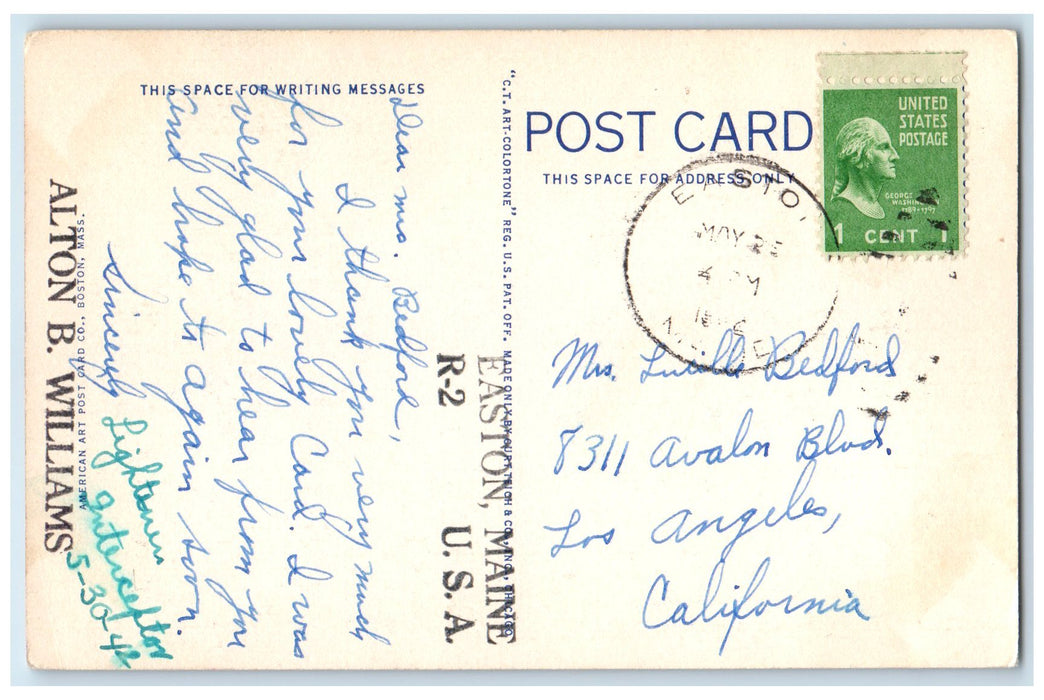 THIS SPACE FOR WRITING MESSAGES
Dear Mrs. Bedford,
I thank you very much
for your lovely Card. I was
very glad to hear from you
and hope to again soon.
Sincerely
5-30-42
ALTON B. WILLIAMS
EASTON, MAINE
R-2 U.S.A.
AMERICAN ART POST CARD CO., BOSTON, MASS.
"C.T. ART-COLORTONE" REG. U.S. PAT. OFF. MADE ONLY BY CURT TEICH & CO., INC., CHICAGO
POST CARD
THIS SPACE FOR ADDRESS ONLY
UNITED
STATES
POSTAGE
GEORGE
WASHINGTON
1789-1797
1 CENT 1
MAY 25
4 PM
Mrs. Lucille Bedford
8311 Avalon Blvd.
Los Angeles,
California